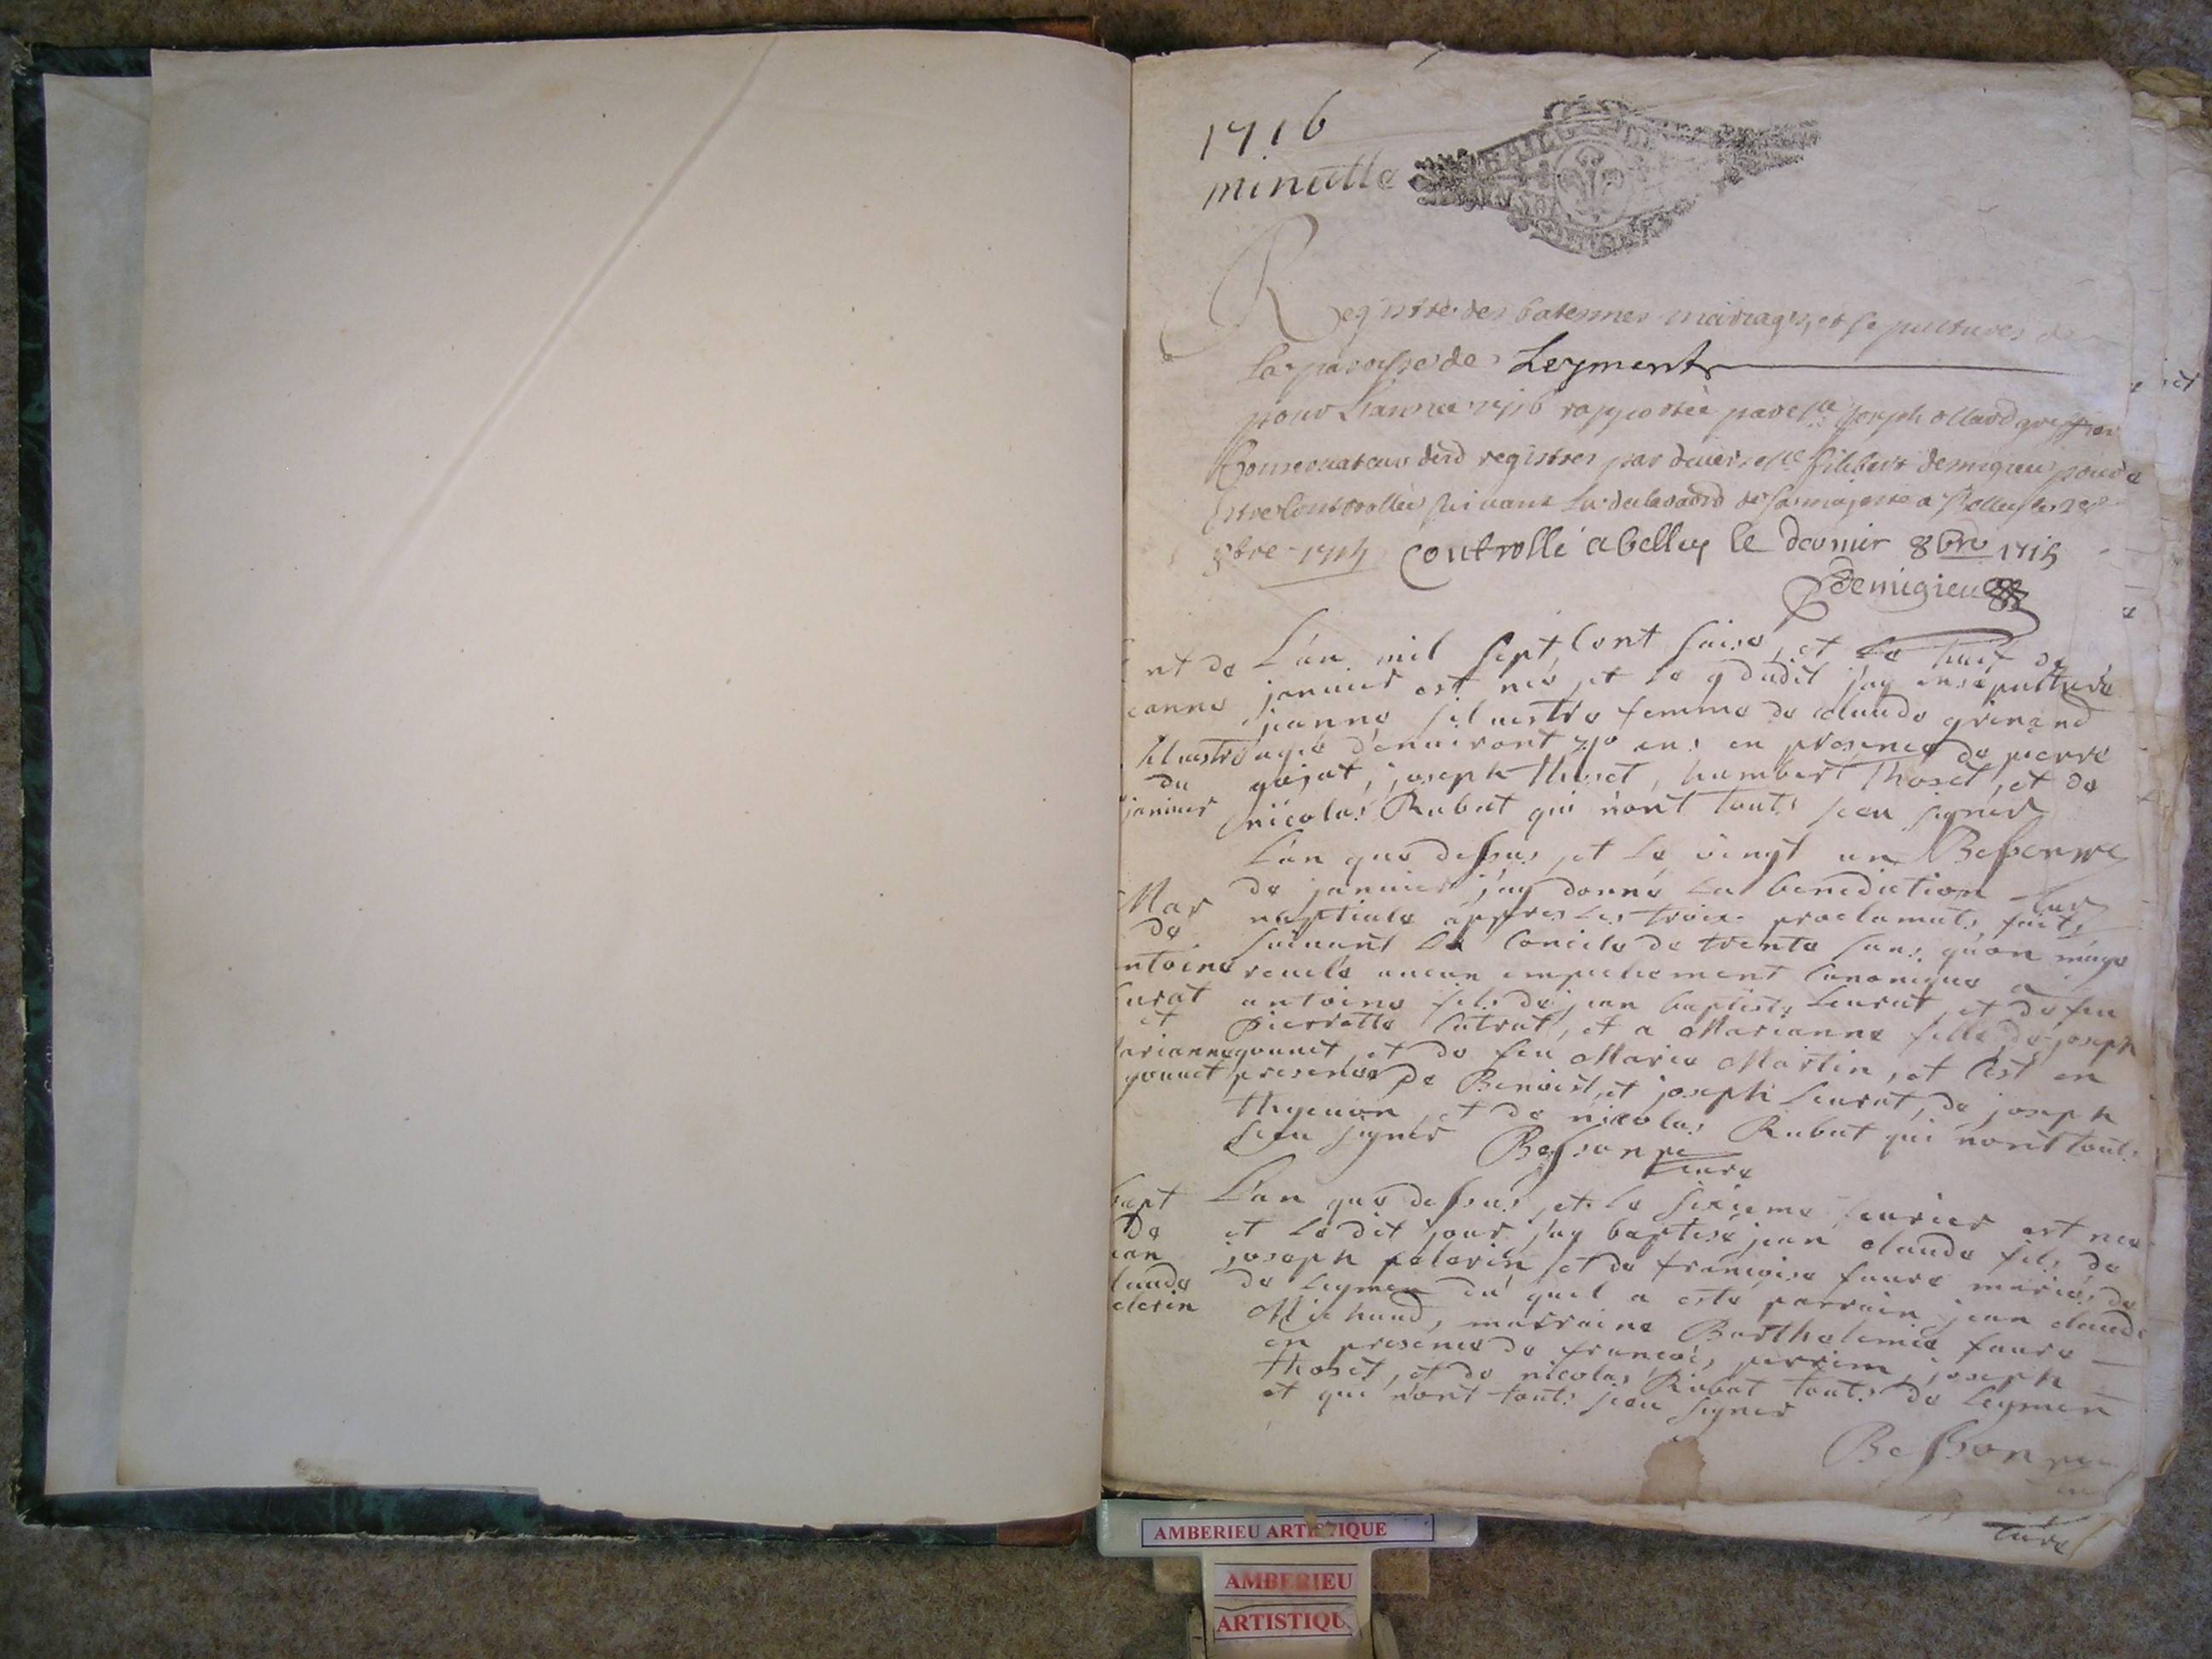 1716
minutte
GENERALITE DE
Registre des batesmes mariages, et sepultures de
La paroisse de Leyment
pour L'année 1716 rapportée par Me Joseph ollard greffier
Conservateur desd registres par devers Me filibert demigieu pour
Estre Controllée suivant La declaraôn de sa majesté a Belley le
8bre 1715 Controllé a belley le dernier 8bre 1715
Demigieu
L'an mil sept cent saise, et le huit de
janvier est mes et le 9 dudit j'ay ensepulturé
jeanne silvestre femme de claude grinand
agés d'environt 70 ans en présence de pierre
gojat, joseph thoset, humbert Thoset, et de
nicolas Rubat qui n'ont touts sceu signer
Bessonne
curé
nt de
eanne
silvestre
du
janvier
L'an que dessus, et le vingt un
de janvier j'ay donné la benediction
nuptiale appres les troix proclamats faits
suivant le Concile de trente sans qu'on m'aye
revelé aucun empechement Canonique a
antoine fils de jean baptiste Leurat, et de feu
pierrette Cutrat, et a Marianne fille de joseph
gonnet, et de feu Marie Martin, et c'est en
presence de Benoist, et joseph Leurat, de joseph
Thevenon, et de nicolas Rubat qui n'ont touts
sceu signer Bessonne
curé
Mar
de
ntoine
eurat
et
arianne
gonnet
L'an que dessus, et le sixieme feurier est né
et le dit jour j'ay baptisé jean claude fils de
joseph pelerin et de françoise faure mariés de
de Leymen du quel a esté parrain jean claude
Michaud, marraine Bartholemie faure
en presence de françois perrim, joseph
thoset, et de nicolas Rubat touts de Leymen
et qui n'ont touts sceu signer
Bessonne
curé
bapt
de
ean
laude
elerin
AMBERIEU ARTISTIQUE
AMBERIEU
ARTISTIQU